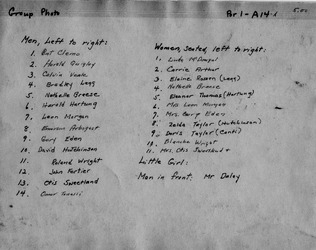 Group Photo
Br 1-A14-1
5.00
Men, Left to right:
1. Clemo
2. Harold Quigley
3. Calvin
4. Bradley Legg
5. Nathalie Breeze
6. Harold Hartung
7. Leon Morgan
8. Emerson
9. Gary Eden
10. David Hutchinson
11. Roland Wright
12. John Fortier
13. Otis Sweetland
14.
Women, seated, left to right:
1.
2. Carrie Arthur
3. Elaine Rosen (Legg)
4. Nathalie Breeze
5. Eleanor Thomas (Hartung)
6. Mrs Leon Morgan
7. Mrs. Gary Eden
8. Zelda Taylor (Hutchinson)
9. Doris Taylor (Conti)
10. Blanche Wright
11. Mrs. Otis Sweetland
Little Girl:
Man in front. Mr Daley